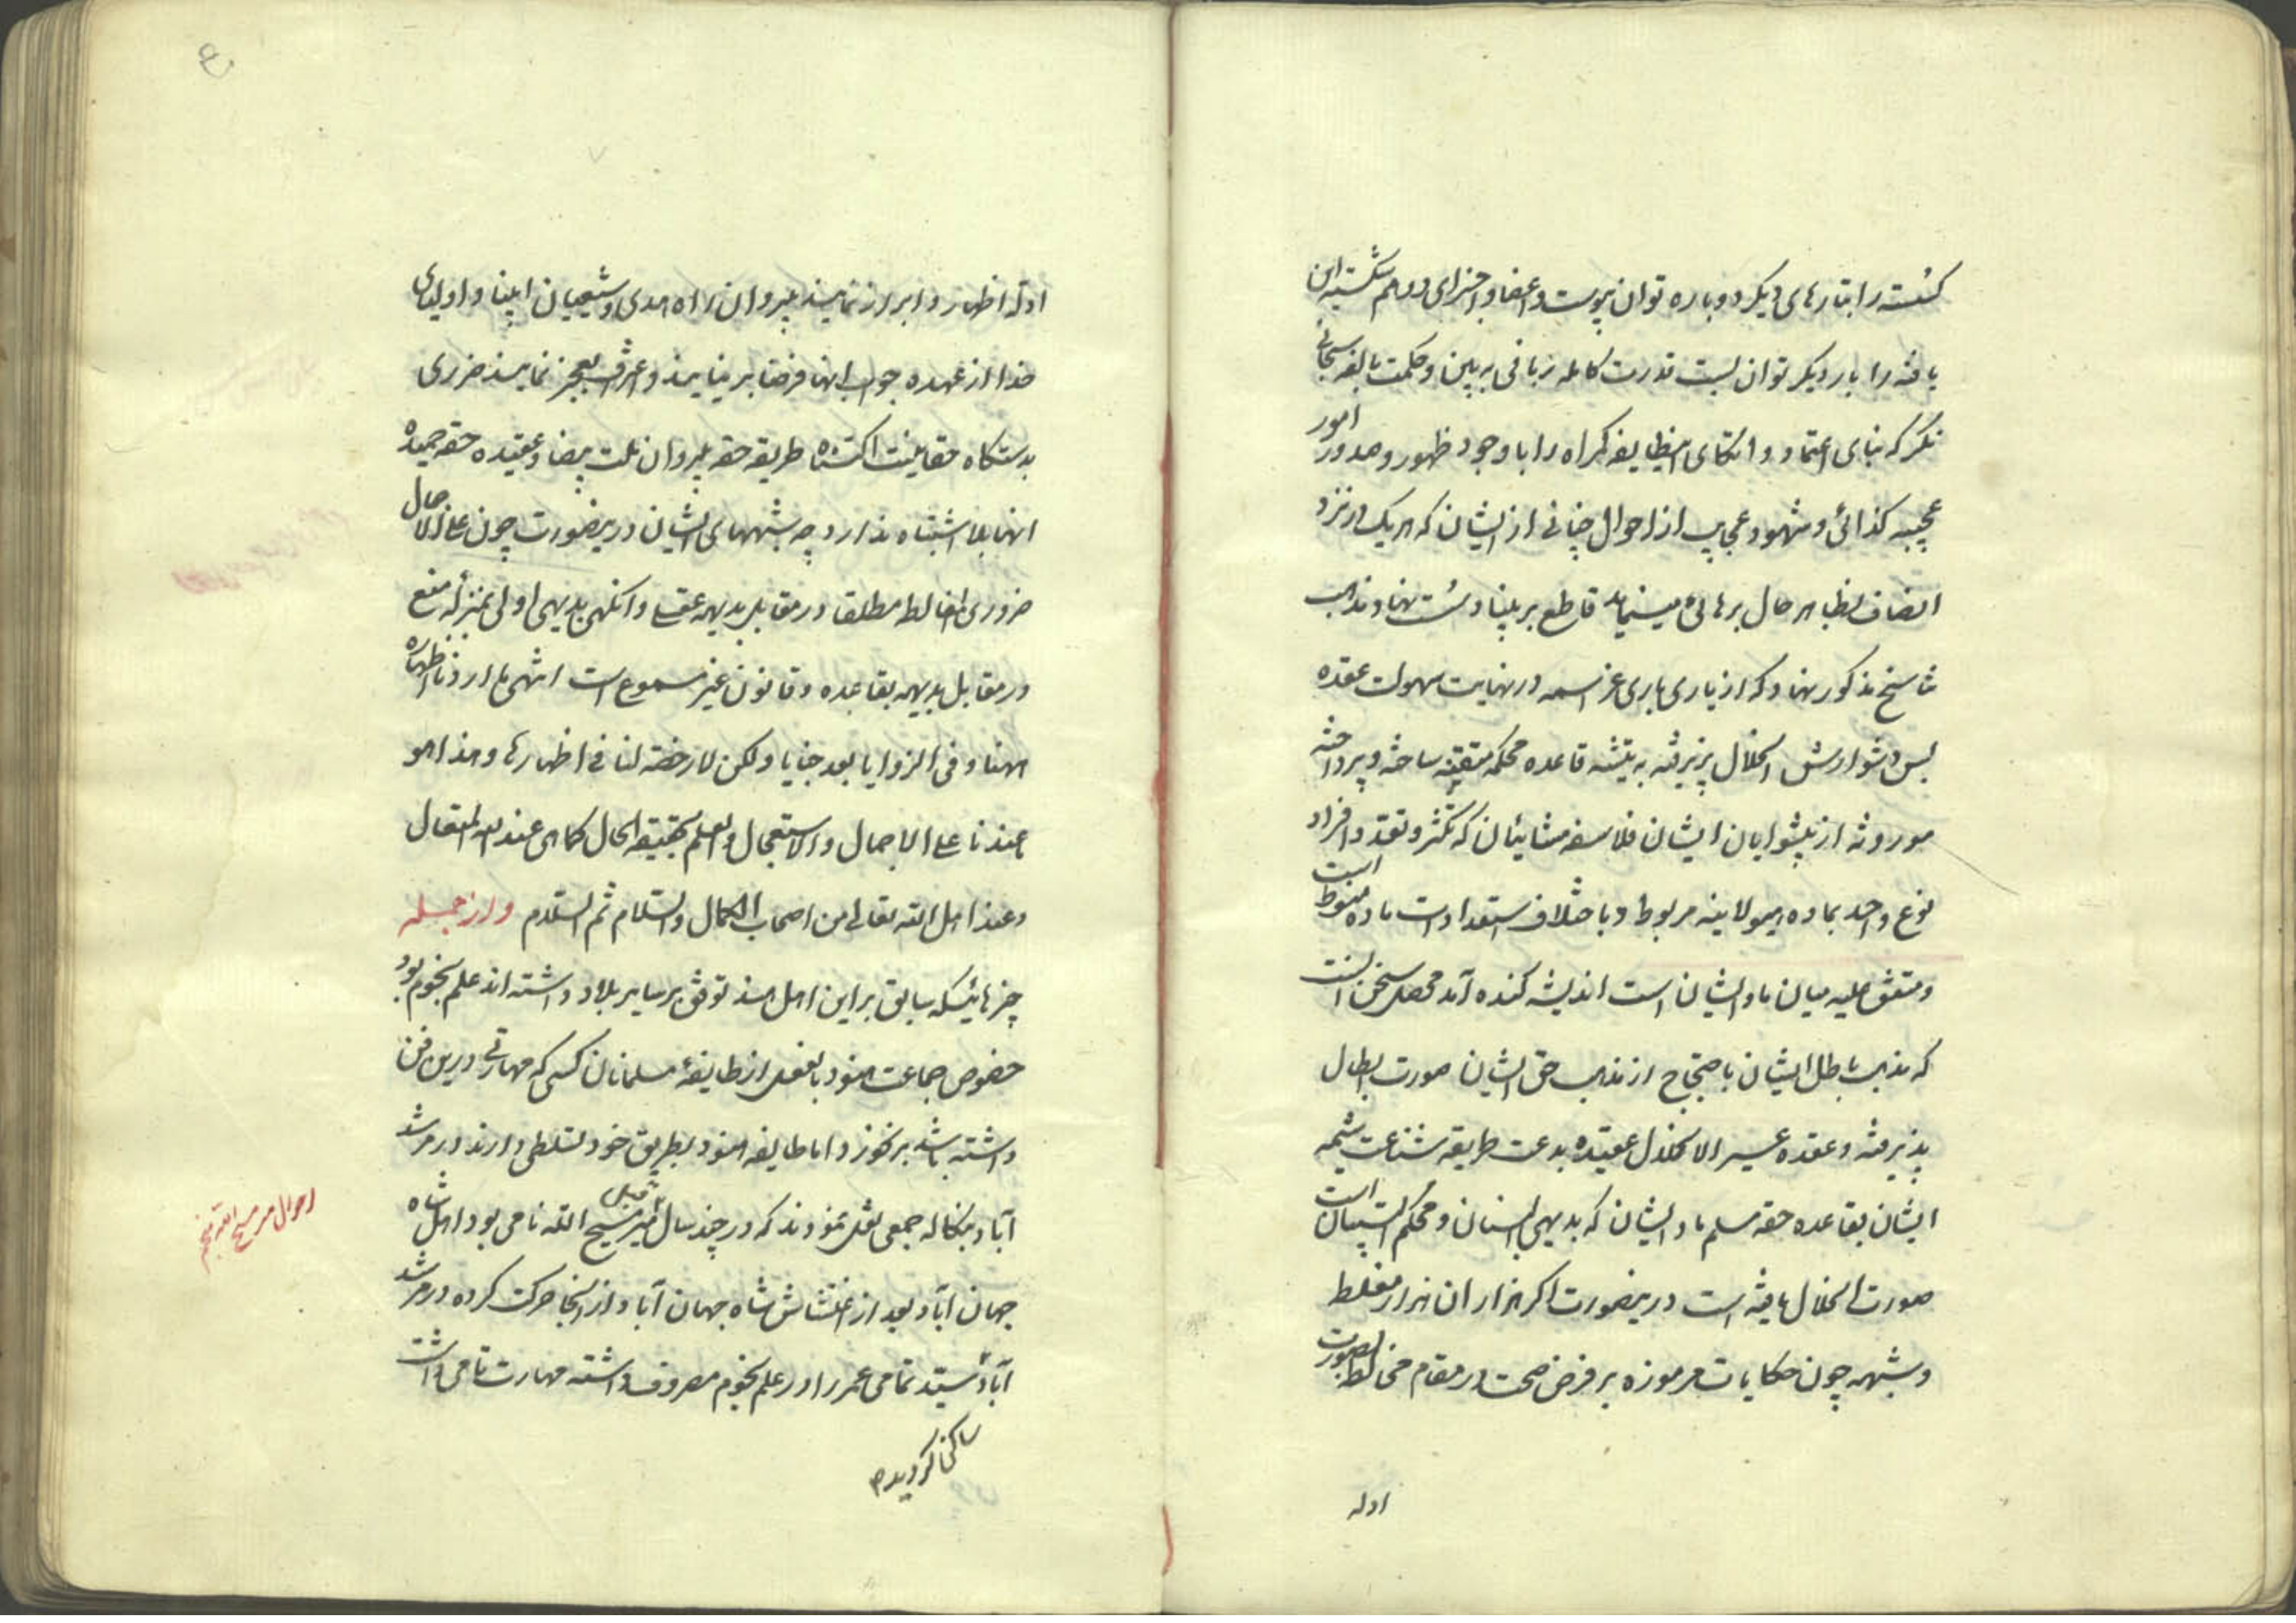 کسسته را بتارهای دیگر دوباره توان پیوست و اعضا و اجزای درهم شکسته این
یافته را بار دیگر توان بست قدرت کامله ربانی به بین و حکمت بالغه سبحانی
نگر که بنای اعتماد و اتکای اینطایفه گمراه را با وجود ظهور و صدور امور
عجیبه کذائی و شهود عجایب از احوال چنانی از ایشان که هر یک در نزد
انصاف بظاهر حال برهانی مینماید قاطع بر بنیاد سست نهاد مذهب
تناسخ مذکور نهاد که از یاری باری عز اسمه در نهایت سهولت عقده
بس دشوارش انحلال پذیرفته به تیشه قاعده محکمه متقنه ساخته و پرداخته
موروثه از پیشوایان ایشان فلاسفه مشائیان که تکثر و تعدد افراد
نوع واحد بماده هیولانیه مربوط و باختلاف استعدادات ماده منوط است
و متفق علیه میان ما و ایشان است اندیشه کنده آمد محصل سخن آنست
که مذهب باطل ایشان باحتجاج از مذهب حق ایشان صورت ابطال
پذیرفته و عقده عسیر الانحلال عقیده بدعت طریقه شناعت شیمه
ایشان بقاعده حقه مسلم ما و ایشان که بدیهی البنیان و محکم التبیان است
صورت انحلال یافته است درینصورت اگر هزاران هزار مغلطه
و شبهه چون حکایات مرموزه بر فرض صحت در مقام مخالطه بصورت
ادله
ادله اظهار و ابراز نمایند پیروان راه هدی و شیعیان انبیا و اولیای
خدا از عهده جواب انها فرضا بر نیایند و اعتراف بعجز نمایند ضرری
بدستگاه حقانیت طریقه حقه پیروان ملت بیضا و عقیده حقه حمیده
انها بلا اشتباه ندارد چه شبههای ایشان درینصورت چون علی الاجمال
ضروری اغالط مطلقا در مقابل بدیهه عقلی وانگهی بدیهی اولی بمنزله منع
در مقابل بدیهیه بقاعده و قانون غیر مسموع است انتهی ما اردنا اظهاره
ههنا و فی الزوایا بعد خبایا و لکن لا رخصة لنا فی اظهارها و هذا هو
عندنا علی الاجمال و الاستعجال و العلم بحقیقة الحال کما هی عند الله المتعال
و عند اهل الله تعالی من اصحاب الکمال و السلام ثم السلام و از جمله
چیزهائیکه سابق بر این اهل هند تفوق بر سایر بلاد داشته اند علم نجوم بود
خصوص جماعت هنود بالفعل از طایفهٔ مسلمانان کسی که مهارتی درین فن
داشته باشد بر نخورد و اما طایفه هنود بطریق خود تسلطی دارند در مرشد
آباد بنگاله جمعی نقل نمودند که در چند سال قبل میر مسیح الله نامی بود اهل شاه
جهان آباد بعد از اغتشاش شاه جهان آباد از انجا حرکت کرده در مرشد
آباد سید تمامی عمر را در علم نجوم مصروف داشته مهارت تامی داشت
ساکن گردیده
احوال میر مسیح الله منجم